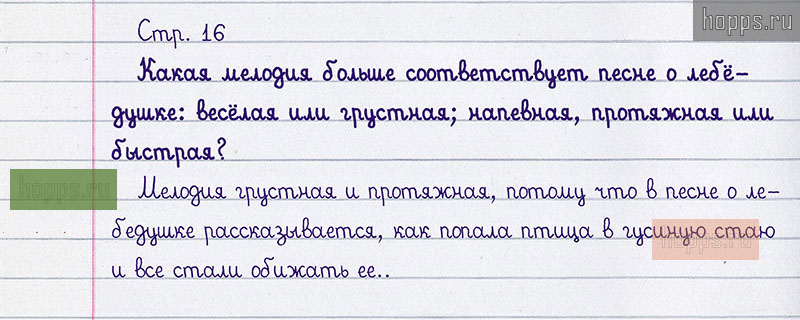 hopps.ru
Стр. 16
Какая мелодия больше соответствует песне о лебё-
душке: весёлая или грустная; напевная, протяжная или
быстрая?
hopps.ru
Мелодия грустная и протяжная, потому что в песне о ле-
бедушке рассказывается, как попала птица в гусиную стаю
hopps.ru
и все стали обижать ее..